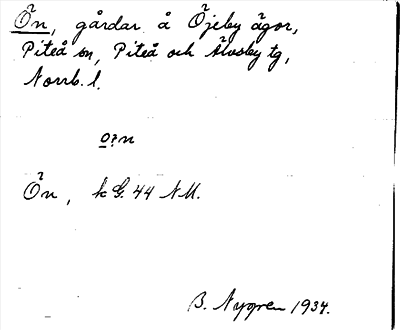 Ön, gårdar å Öjeby ägor,
Piteå sn, Piteå och Älvsby tg,
Norrb. l.
Ön, k G. 44 NU.
B. Nygren 1934.